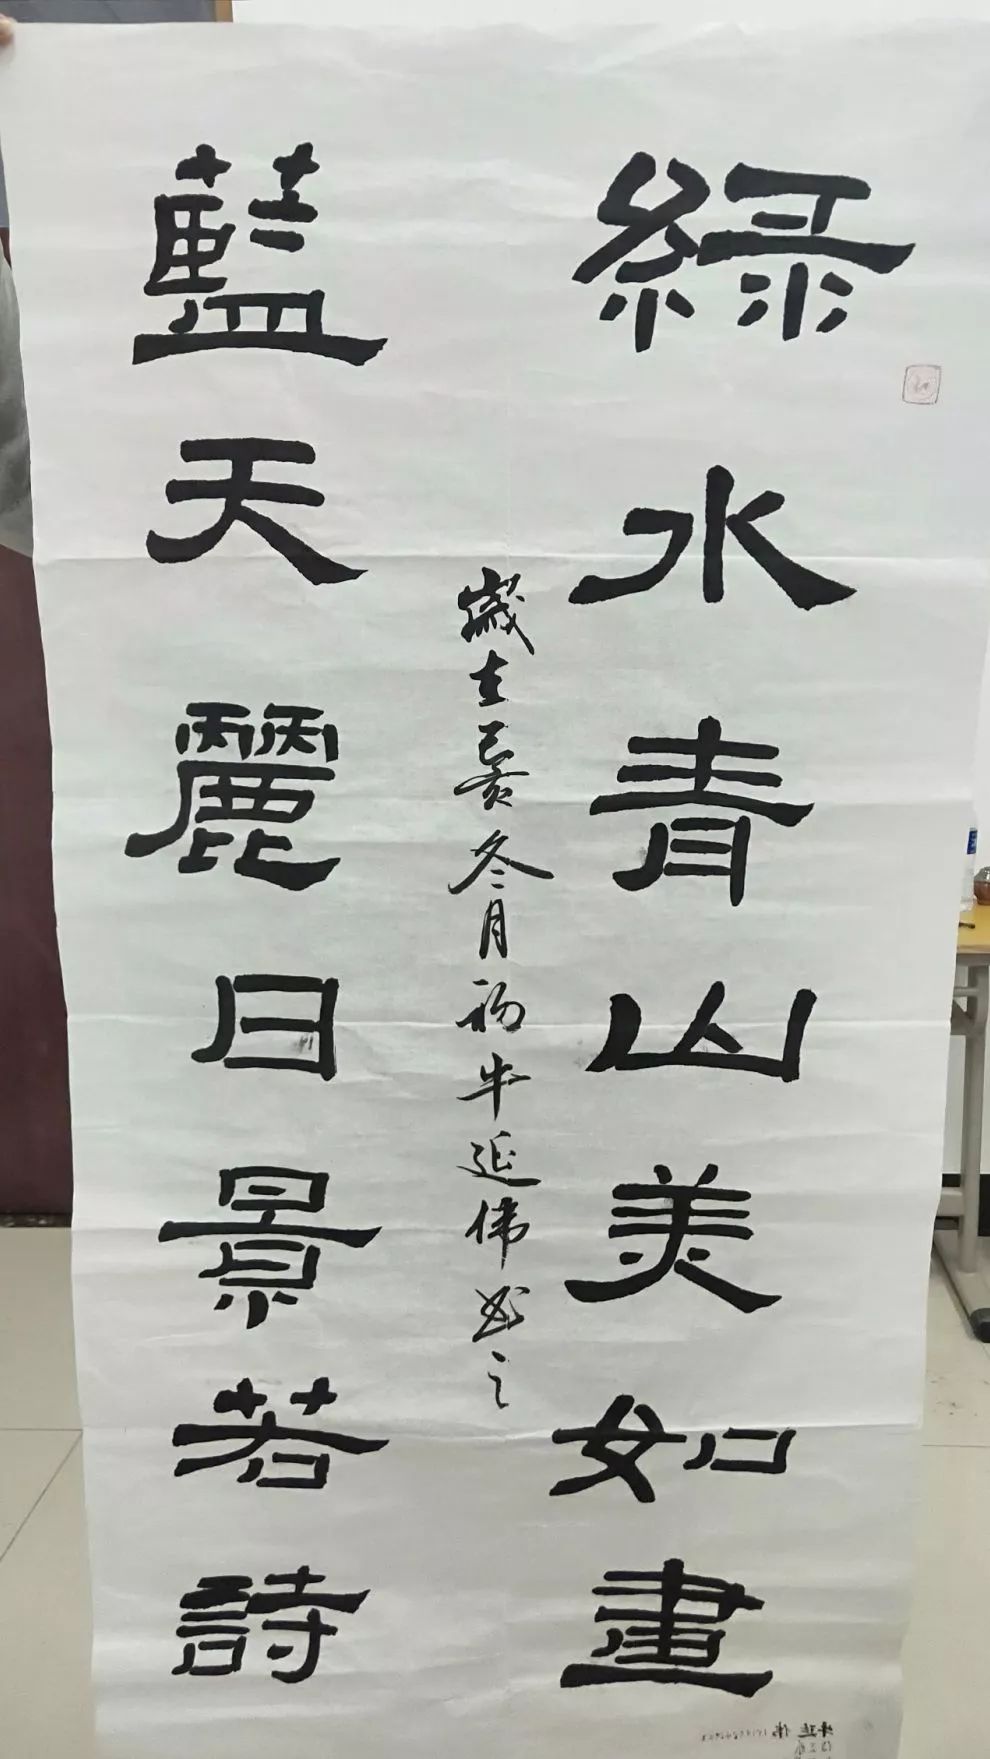 綠水青山美如畫
歲在己亥冬月初牛延偉書之
藍天麗日景若詩
牛延偉